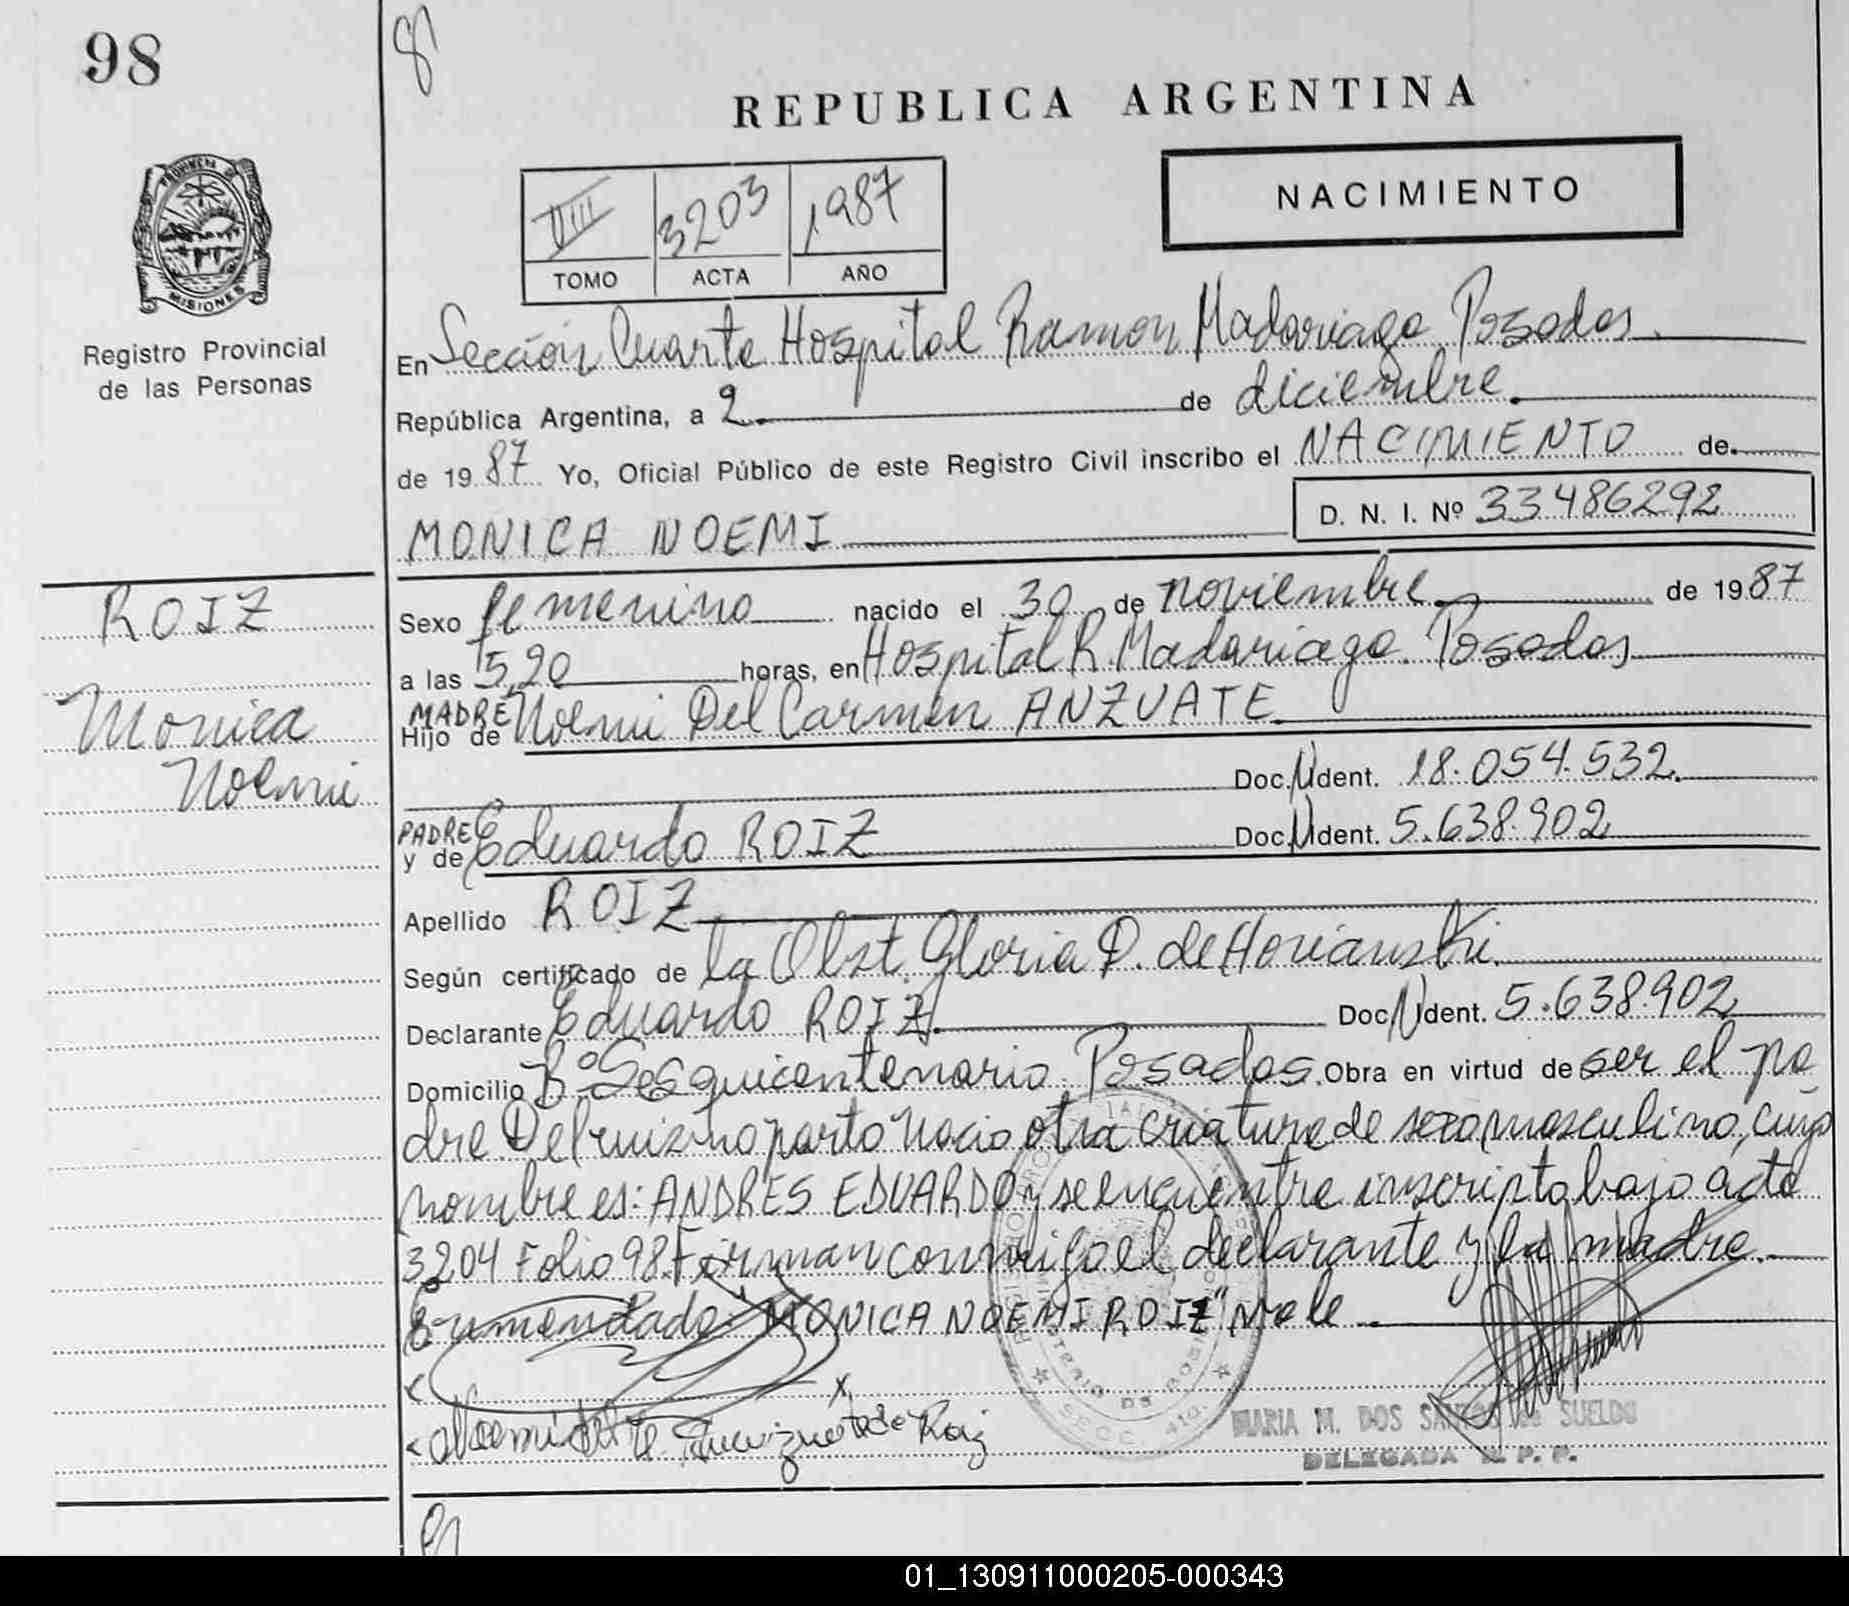 98
8
REPUBLICA ARGENTINA
PROVINCIA DE
MISIONES
Registro Provincial
de las Personas
VIII 3203 1987
TOMO ACTA AÑO
NACIMIENTO
En Sección Cuarta Hospital Ramon Madariaga Posadas
República Argentina, a 2 de diciembre
de 1987 Yo, Oficial Público de este Registro Civil inscribo el NACIMIENTO de
MONICA NOEMI
D. N. I. Nº 33486292
ROIZ
Monica
Noemi
Sexo femenino nacido el 30 de noviembre de 1987
a las 5,20 horas, en Hospital R. Madariaga. Posadas
MADRE
Hijo de Noemi Del Carmen ANZUATE
Doc. N Ident. 18.054.532
PADRE
y de Eduardo ROIZ Doc. N Ident. 5.638.902
Apellido ROIZ
Según certificado de la Obst. Gloria D. de
Declarante Eduardo ROIZ Doc. N Ident. 5.638.902
Domicilio Bº Sesquicentenario Posadas. Obra en virtud de ser el pa
dre. Del mismo parto nacio otra criatura de sexo masculino, cuyo
nombre es: ANDRES EDUARDO y se encuentra inscripto bajo acta
3204 Folio 98. Firman conmigo el declarante y la madre.
Enmendado: "MONICA NOEMI ROIZ" vale
x
Noemi del C. de Roiz
MARIA M. DOS SANTOS de SUELDO
DELEGADA R. P. P.
01_130911000205-000343